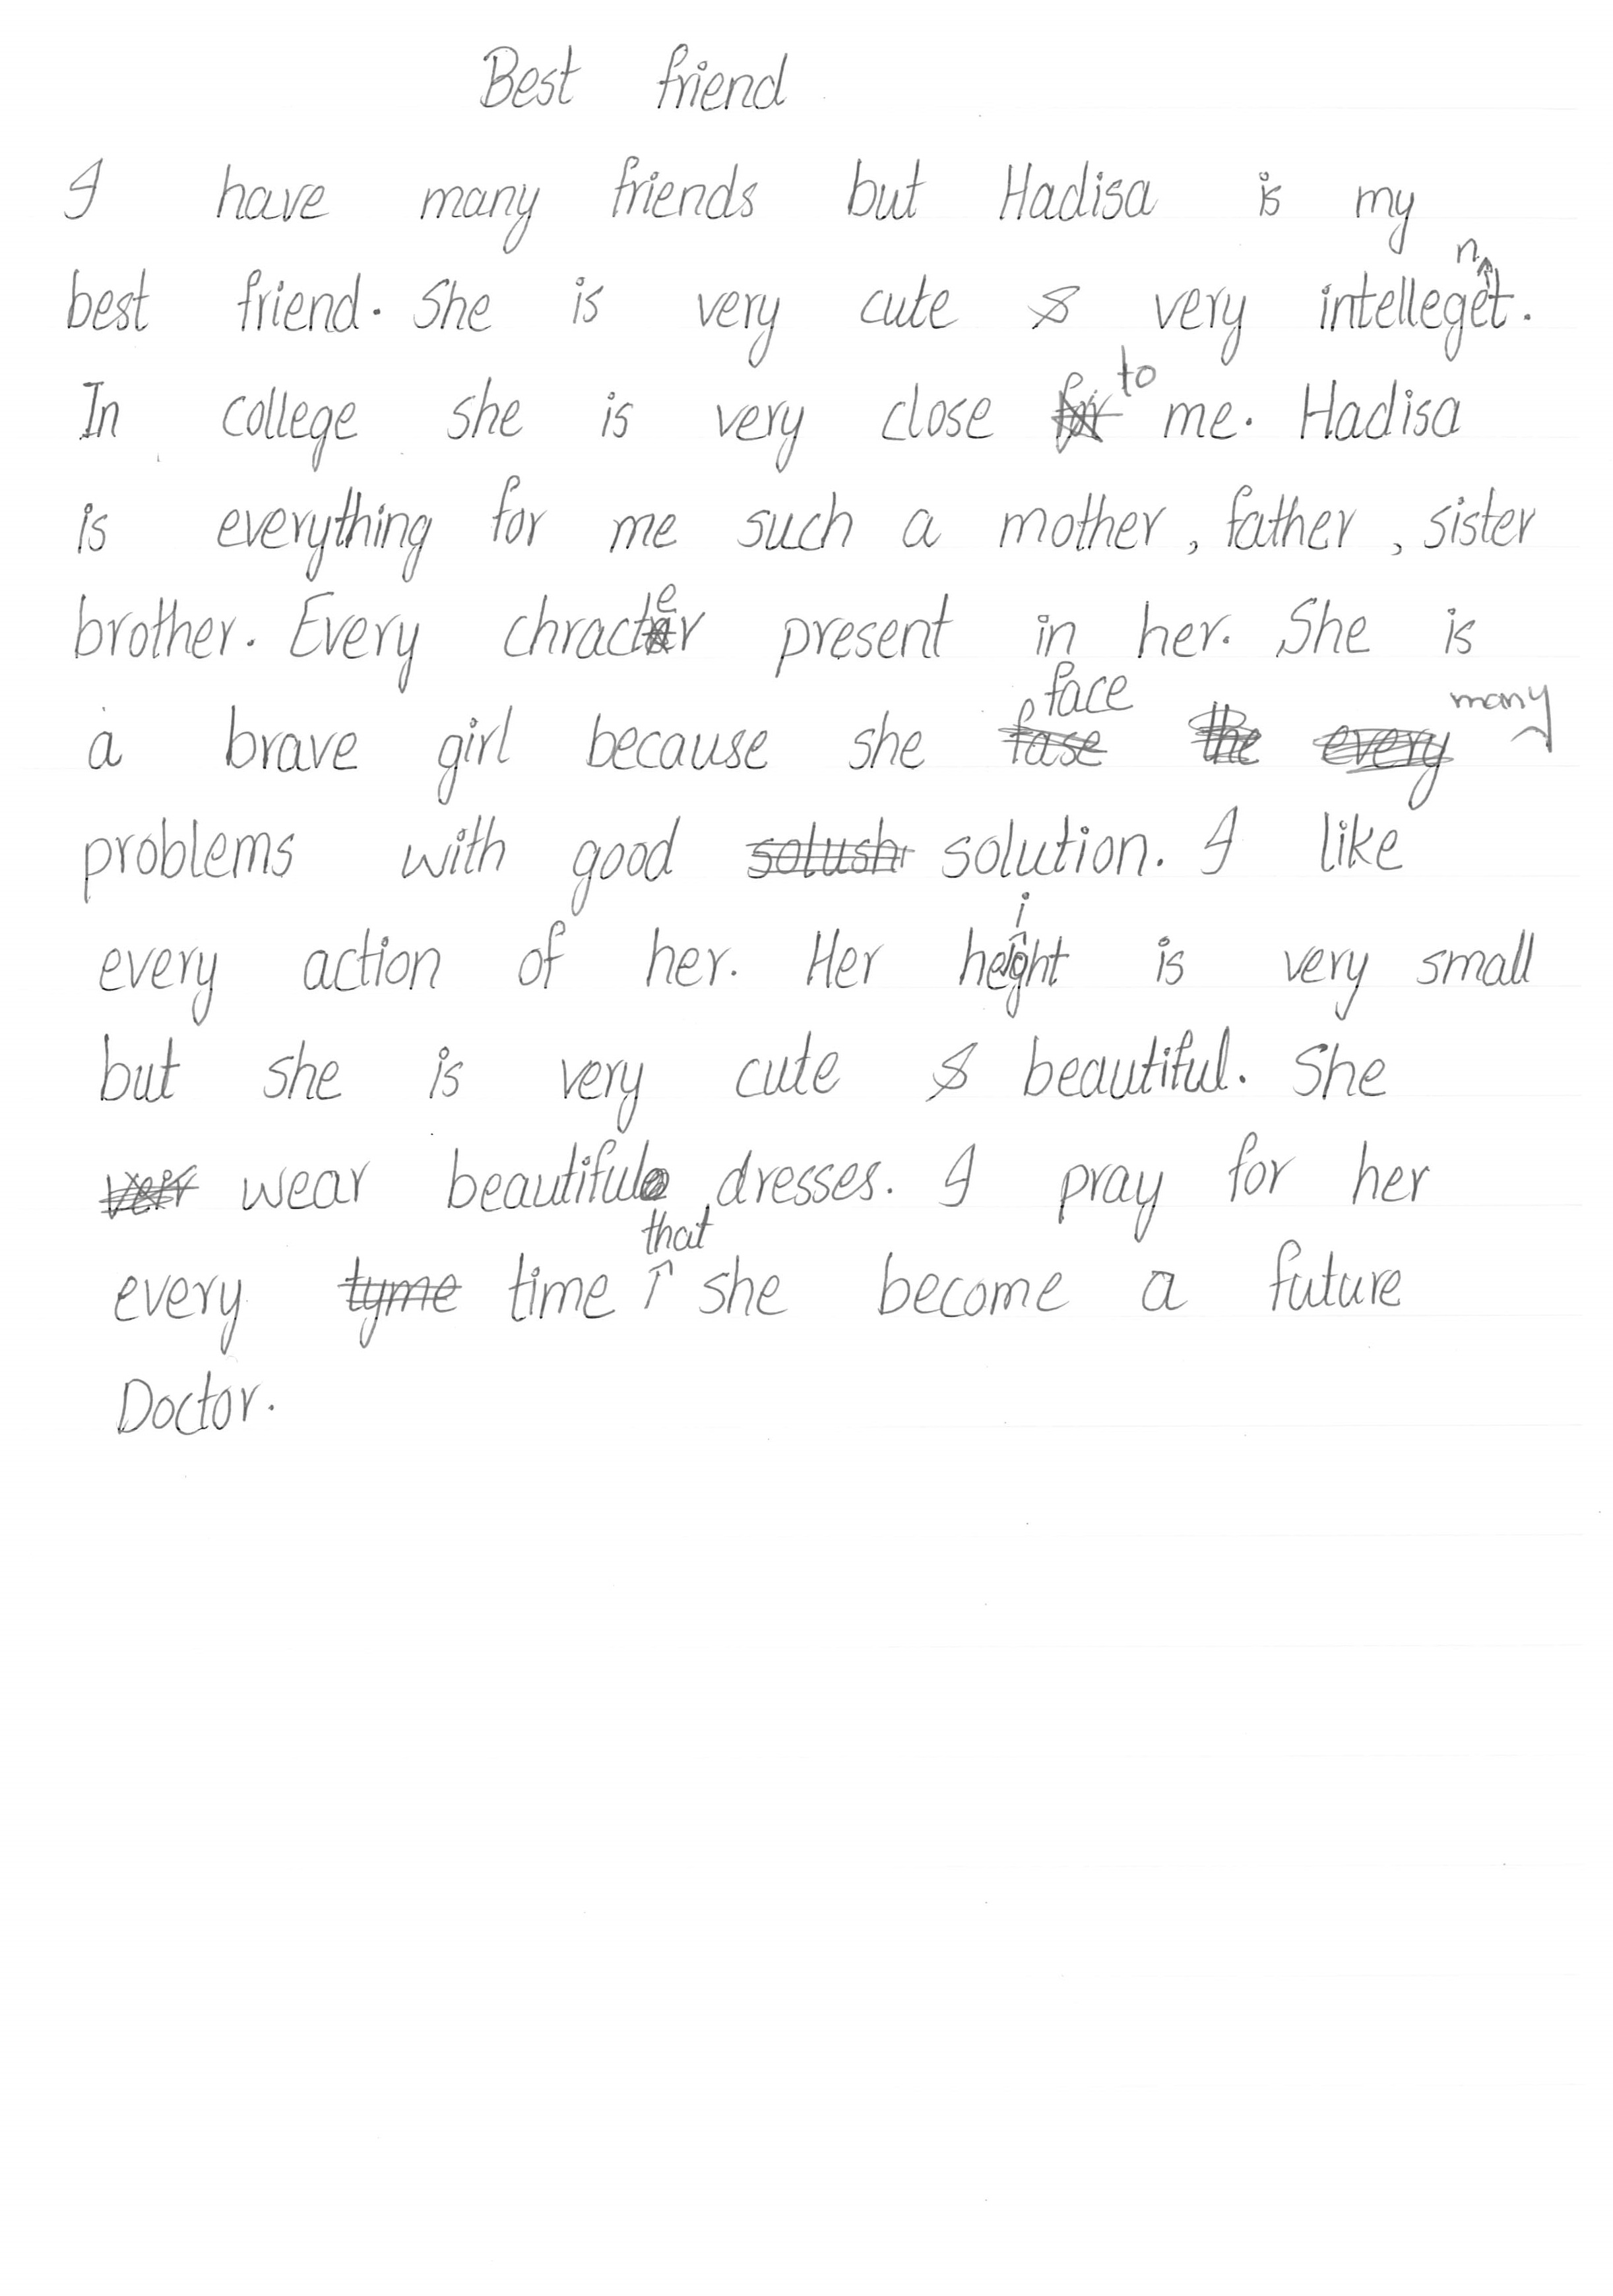 Best friend
I have many friends but Hadisa is my
best friend. She is very cute & very intellegnt.
In college she is very close to me. Hadisa
is everything for me such a mother, father, sister
brother. Every chracter present in her. She is
a brave girl because she face many
problems with good solution. I like
every action of her. Her height is very small
but she is very cute & beautiful. She
wear beautiful dresses. I pray for her
every time that she become a future
Doctor.